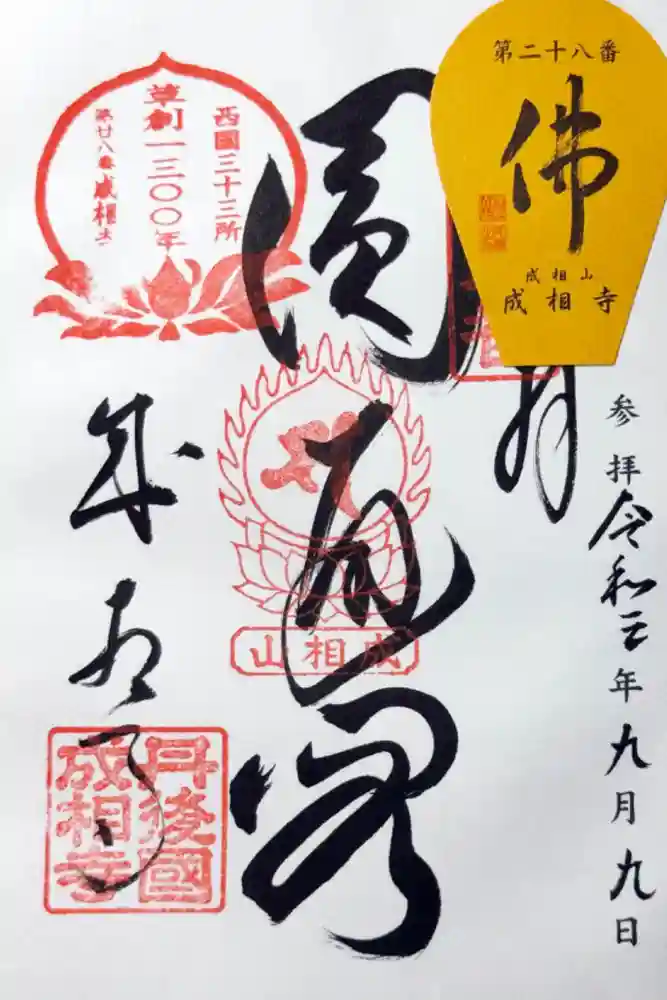 第二十八番
佛
成相山
成相寺
参拝令和三年九月九日
西國三十三所
草創一三〇〇年
第廿八番成相寺
圓通閣
成相山
成相寺
丹後國
成相寺